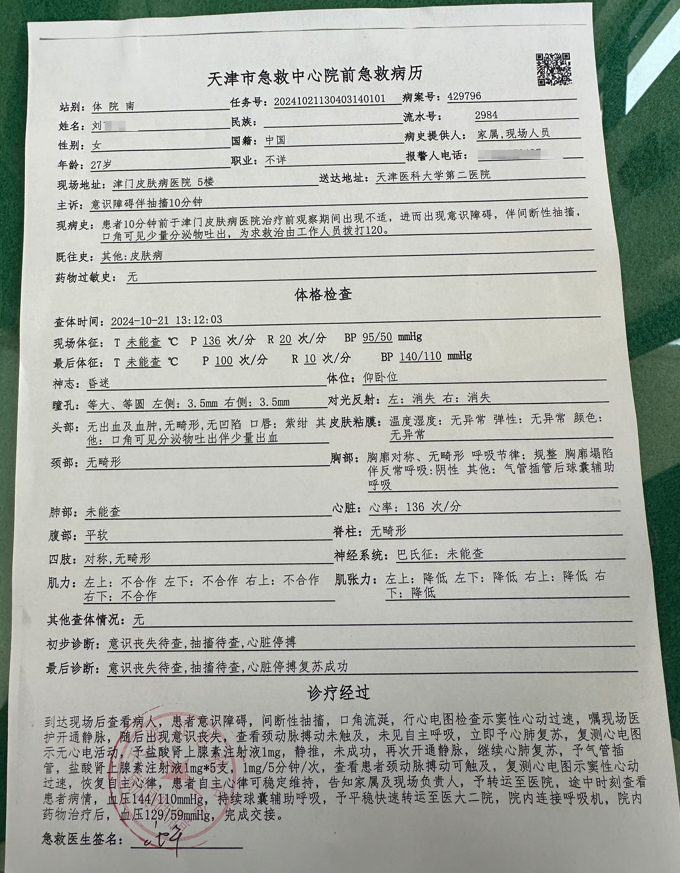 天津市急救中心院前急救病历
站别：体 院 南 任务号：20241021130403140101 病案号：429796
姓名：刘 民族： 流水号：2984
性别：女 国籍：中国 病史提供人：家属,现场人员
年龄：27岁 职业：不详 报警人电话：
现场地址：津门皮肤病医院 5楼 送达地址：天津医科大学第二医院
主诉：意识障碍伴抽搐10分钟
现病史：患者10分钟前于津门皮肤病医院治疗前观察期间出现不适，进而出现意识障碍，伴间断性抽搐，
口角可见少量分泌物吐出，为求救治由工作人员拨打120。
既往史：其他:皮肤病
药物过敏史：无
体格检查
查体时间：2024-10-21 13:12:03
现场体征：T 未能查 ℃ P 136 次/分 R 20 次/分 BP 95/50 mmHg
最后体征：T 未能查 ℃ P 100 次/分 R 10 次/分 BP 140/110 mmHg
神志：昏迷 体位：仰卧位
瞳孔：等大、等圆 左侧：3.5mm 右侧：3.5mm 对光反射：左：消失 右：消失
头部：无出血及血肿,无畸形,无凹陷 口唇：紫绀 其
他：口角可见分泌物吐出伴少量出血
皮肤粘膜：温度湿度：无异常 弹性：无异常 颜色：
无异常
颈部：无畸形
胸部：胸廓对称、无畸形 呼吸节律：规整 胸廓塌陷
伴反常呼吸:阴性 其他：气管插管后球囊辅助
呼吸
肺部：未能查 心脏：心率：136 次/分
腹部：平软 脊柱：无畸形
四肢：对称,无畸形 神经系统：巴氏征：未能查
肌力：左上：不合作 左下：不合作 右上：不合作
右下：不合作
肌张力：左上：降低 左下：降低 右上：降低 右
下：降低
其他查体情况：无
初步诊断：意识丧失待查,抽搐待查,心脏停搏
最后诊断：意识丧失待查,抽搐待查,心脏停搏复苏成功
诊疗经过
到达现场后查看病人，患者意识障碍，间断性抽搐，口角流涎，行心电图检查示窦性心动过速，嘱现场医
护开通静脉，随后出现意识丧失，查看颈动脉搏动未触及，未见自主呼吸，立即予心肺复苏，复测心电图
示无心电活动，予盐酸肾上腺素注射液1mg,静推，未成功，再次开通静脉，继续心肺复苏，予气管插
管，盐酸肾上腺素注射液1mg*5支，1mg/5分钟/次，查看患者颈动脉搏动可触及，复测心电图示窦性心动
过速，恢复自主心律，患者自主心律可稳定维持，告知家属及现场负责人，予转运至医院，途中时刻查看
患者病情，血压144/110mmHg，持续球囊辅助呼吸，予平稳快速转运至医大二院，院内连接呼吸机，院内
药物治疗后，血压129/59mmHg，完成交接。
急救医生签名：